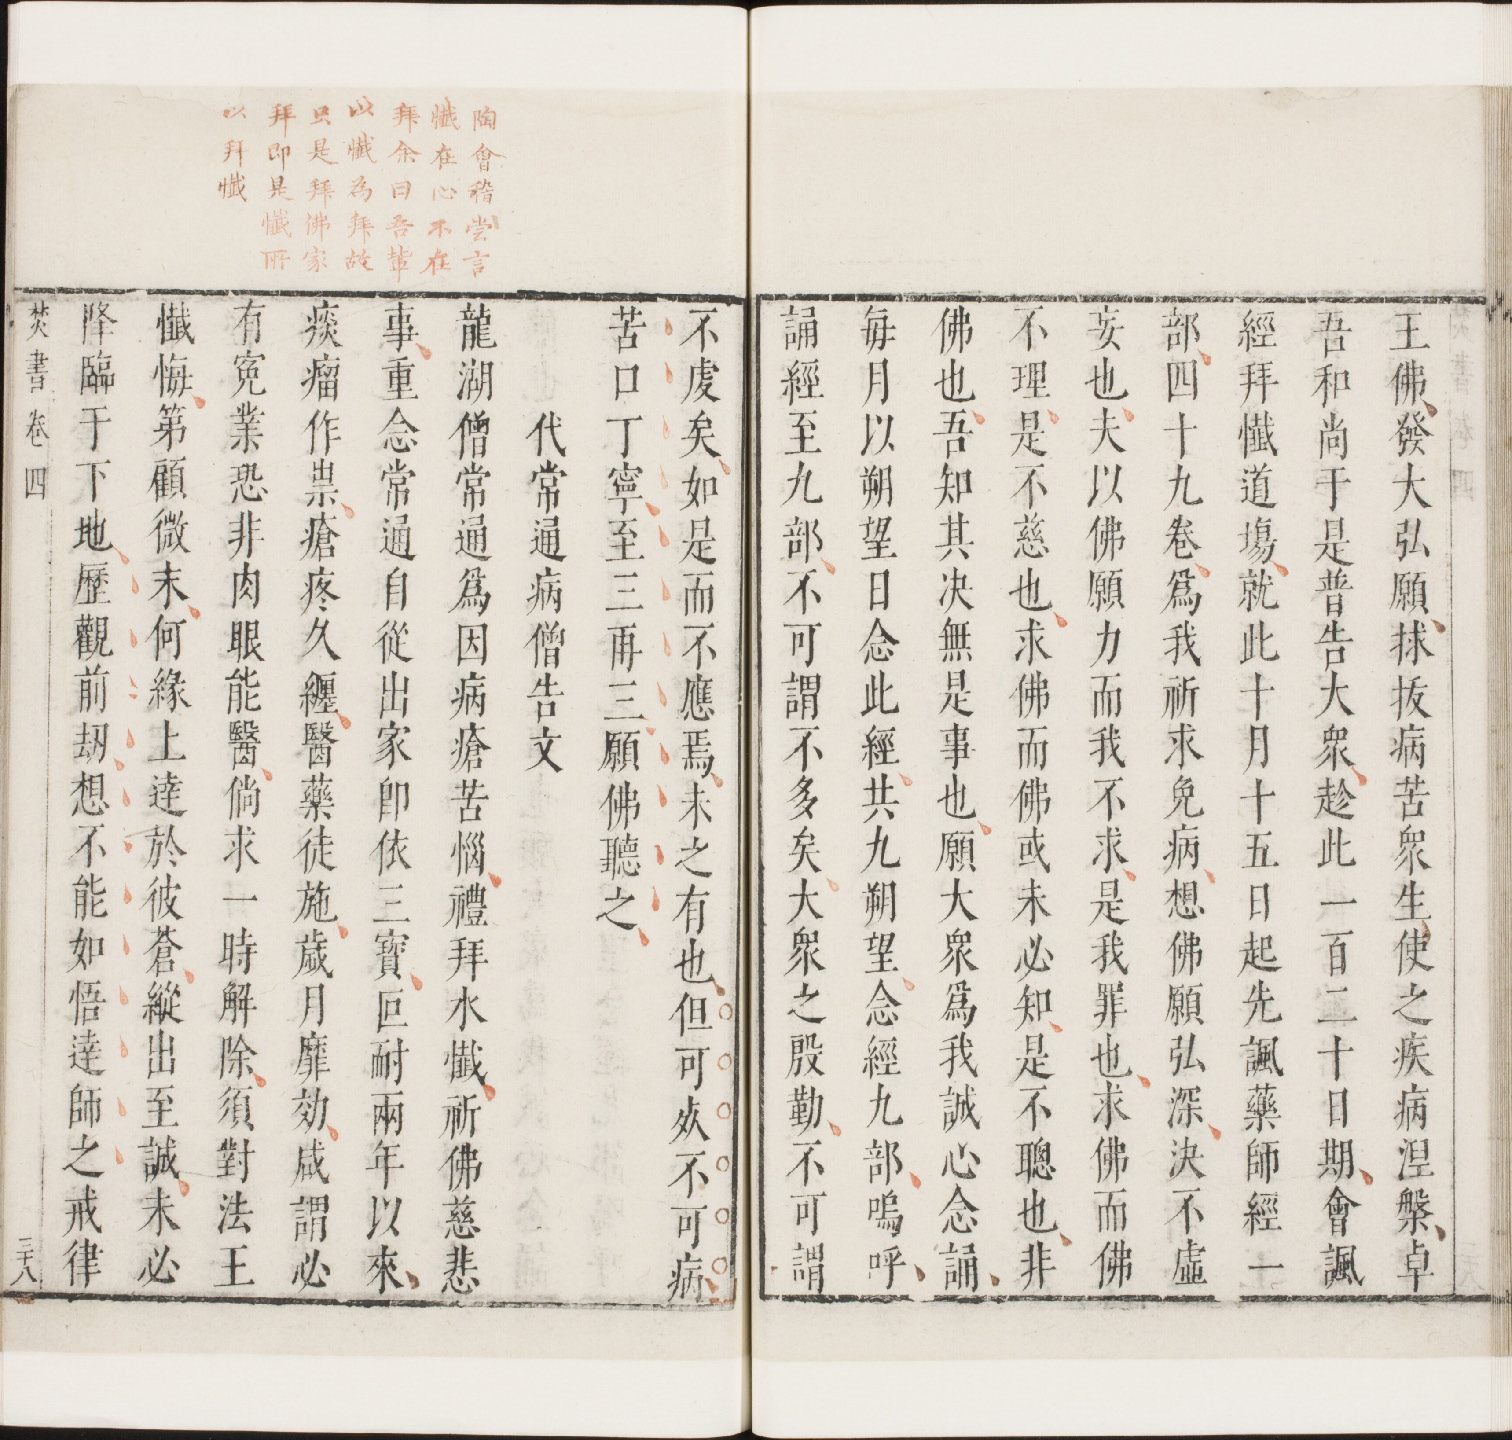 王佛發大弘願拔病苦衆生使之疾病涅槃卓
吾和尚于是普告大衆趁此一百二十日期會諷
經拜懺道場就此十月十五日起先諷藥師經一
部四十九卷爲我祈求免病想佛願弘深決不虛
妄也夫以佛願力而我不求是我罪也求佛而佛
不理是不慈也求佛而佛或未必知是不聰也非
佛也吾知其決無是事也願大衆爲我誠心念誦
每月以朔望日念此經共九朔望念經九部嗚呼
誦經至九部不可謂不多矣大衆之殷勤不可謂
不虔矣如是而不應焉未之有也但可死不可病
苦口丁寧至三再三願佛聽之
代常通病僧告文
龍湖僧常通爲因病瘡苦惱禮拜水懺祈佛慈悲
事重念常通自從出家卽依三寶叵耐兩年以來
痰瘤作祟瘡疼久纏醫藥徒施歲月靡効咸謂必
有寃業恐非肉眼能醫倘求一時解除須對法王
懺悔第顧微末何緣上達於彼蒼縱出至誠未必
降臨于下地歷觀前刼想不能如悟達師之戒律
焚書 卷四 三十八
陶會稽嘗言
懺在心不在
拜余曰吾輩
以懺爲拜故
只是拜佛家
拜即是懺所
以拜懺